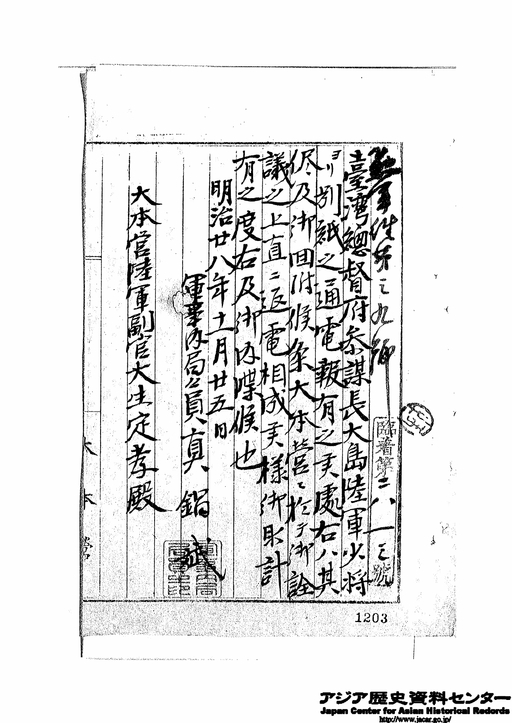 臺灣總督府参謀長大島陸軍少将
ヨリ別紙之通電報有之候處右ハ其
侭及御回附候条大本営ニ於テ御詮
議之上直ニ返電相成候様御取計
有之度右及御内牒候也
明治廿八年十一月廿五日
軍務局員真鍋斌
大本営陸軍副官大生定孝殿
臨着第二八一三號
1203
アジア歴史資料センター
Japan Center for Asian Historical Records
http://www.jacar.go.jp/